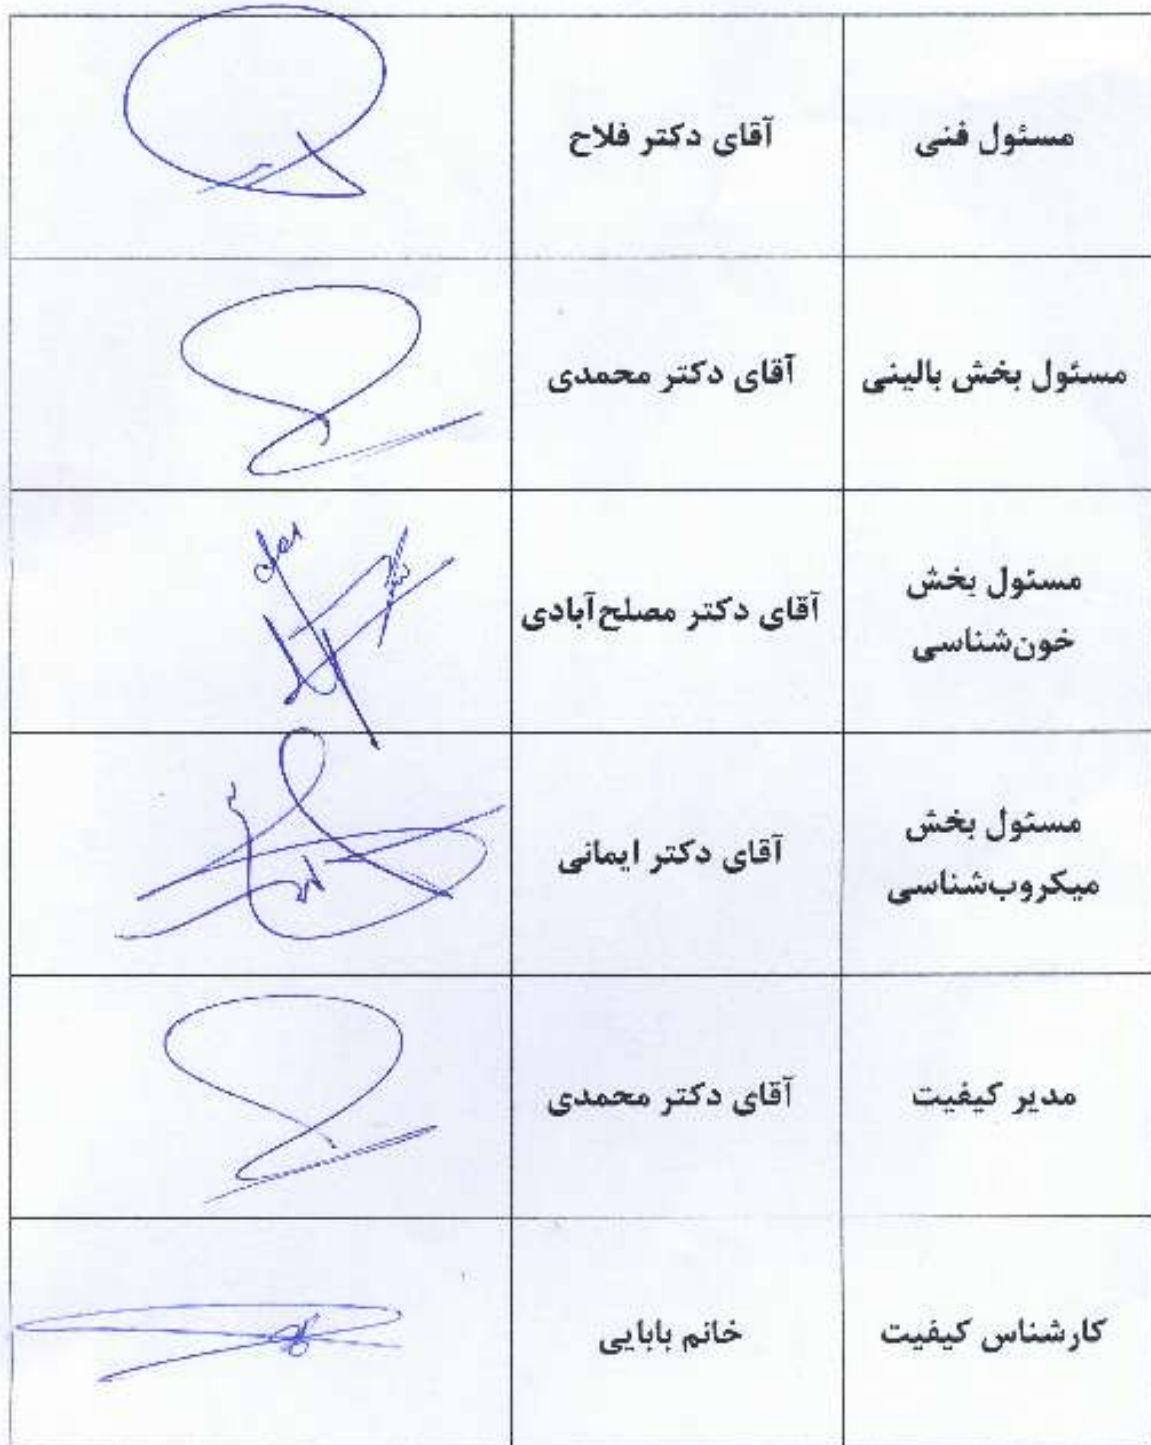 مسئول فنی
آقای دکتر فلاح
مسئول بخش بالینی
آقای دکتر محمدی
مسئول بخش
خون‌شناسی
آقای دکتر مصلح‌آبادی
مسئول بخش
میکروب‌شناسی
آقای دکتر ایمانی
مدیر کیفیت
آقای دکتر محمدی
کارشناس کیفیت
خانم بابایی